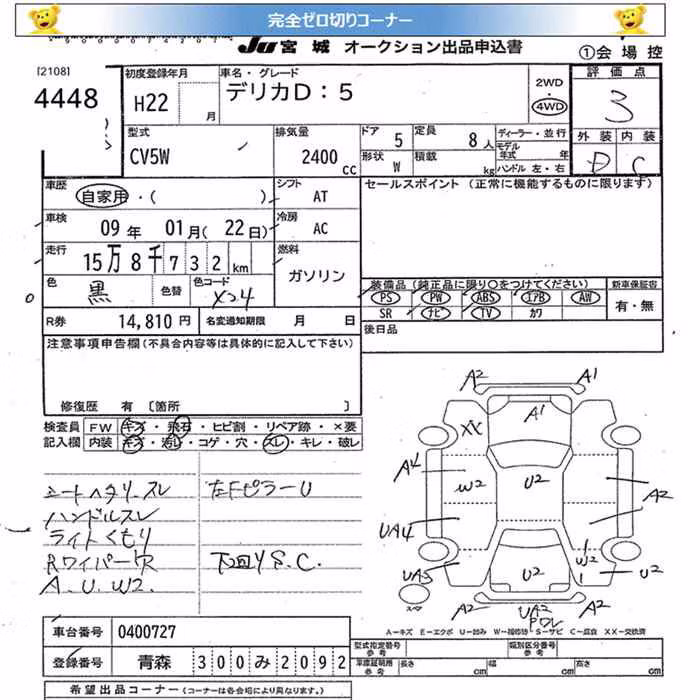 完全ゼロ切りコーナー
Ju 宮城 オークション出品申込書
①会場控
[2108]
4448
初度登録年月
H22 月
車名・グレード
デリカD:5
2WD
・
4WD
評価点
3
外装 内装
D C
型式
CV5W
排気量
2400 cc
ドア 5
定員 8人
形状 W
積載 kg
ディーラー・並行
モデル年式 年
ハンドル 左・右
車歴 自家用・( )
シフト AT
車検 09年 01月(22日)
冷房 AC
走行 15万8千732km
燃料 ガソリン
色 黒
色替
色コード X24
R券 14,810円
名変通知期限 月 日
セールスポイント(正常に機能するものに限ります)
装備品(純正品に限り○をつけてください)
新車保証書
PS PW ABS エアB AW
SR ナビ TV カワ
有・無
後日品
注意事項申告欄(不具合内容等は具体的に記入して下さい)
修復歴 有 〔箇所 〕
検査員 FW キズ・飛石・ヒビ割・リペア跡・×要
記入欄 内装 キズ・汚レ・コゲ・穴・スレ・キレ・破レ
シートヘタリ・スレ
ハンドルスレ
ライトくもり
Rワイパー穴
A.U.W2.
左Fピラーu
下回りS.C.
A2 A1
A1
XX
A4
W2
U2
A2
UA4
UA3
W2
U2
U2
A2
UA2
ワレ
A2
スペア
A-キズ E-エクボ U-凹み W-補修跡・S-サビ C-腐食 XX-交換済
車台番号 0400727
登録番号 青森 300み2092
型式指定番号 参考
類別区分番号 参考
車庫証明用 参考
長さ cm
幅 cm
高さ cm
希望出品コーナー(コーナーは各会場により異なります。)